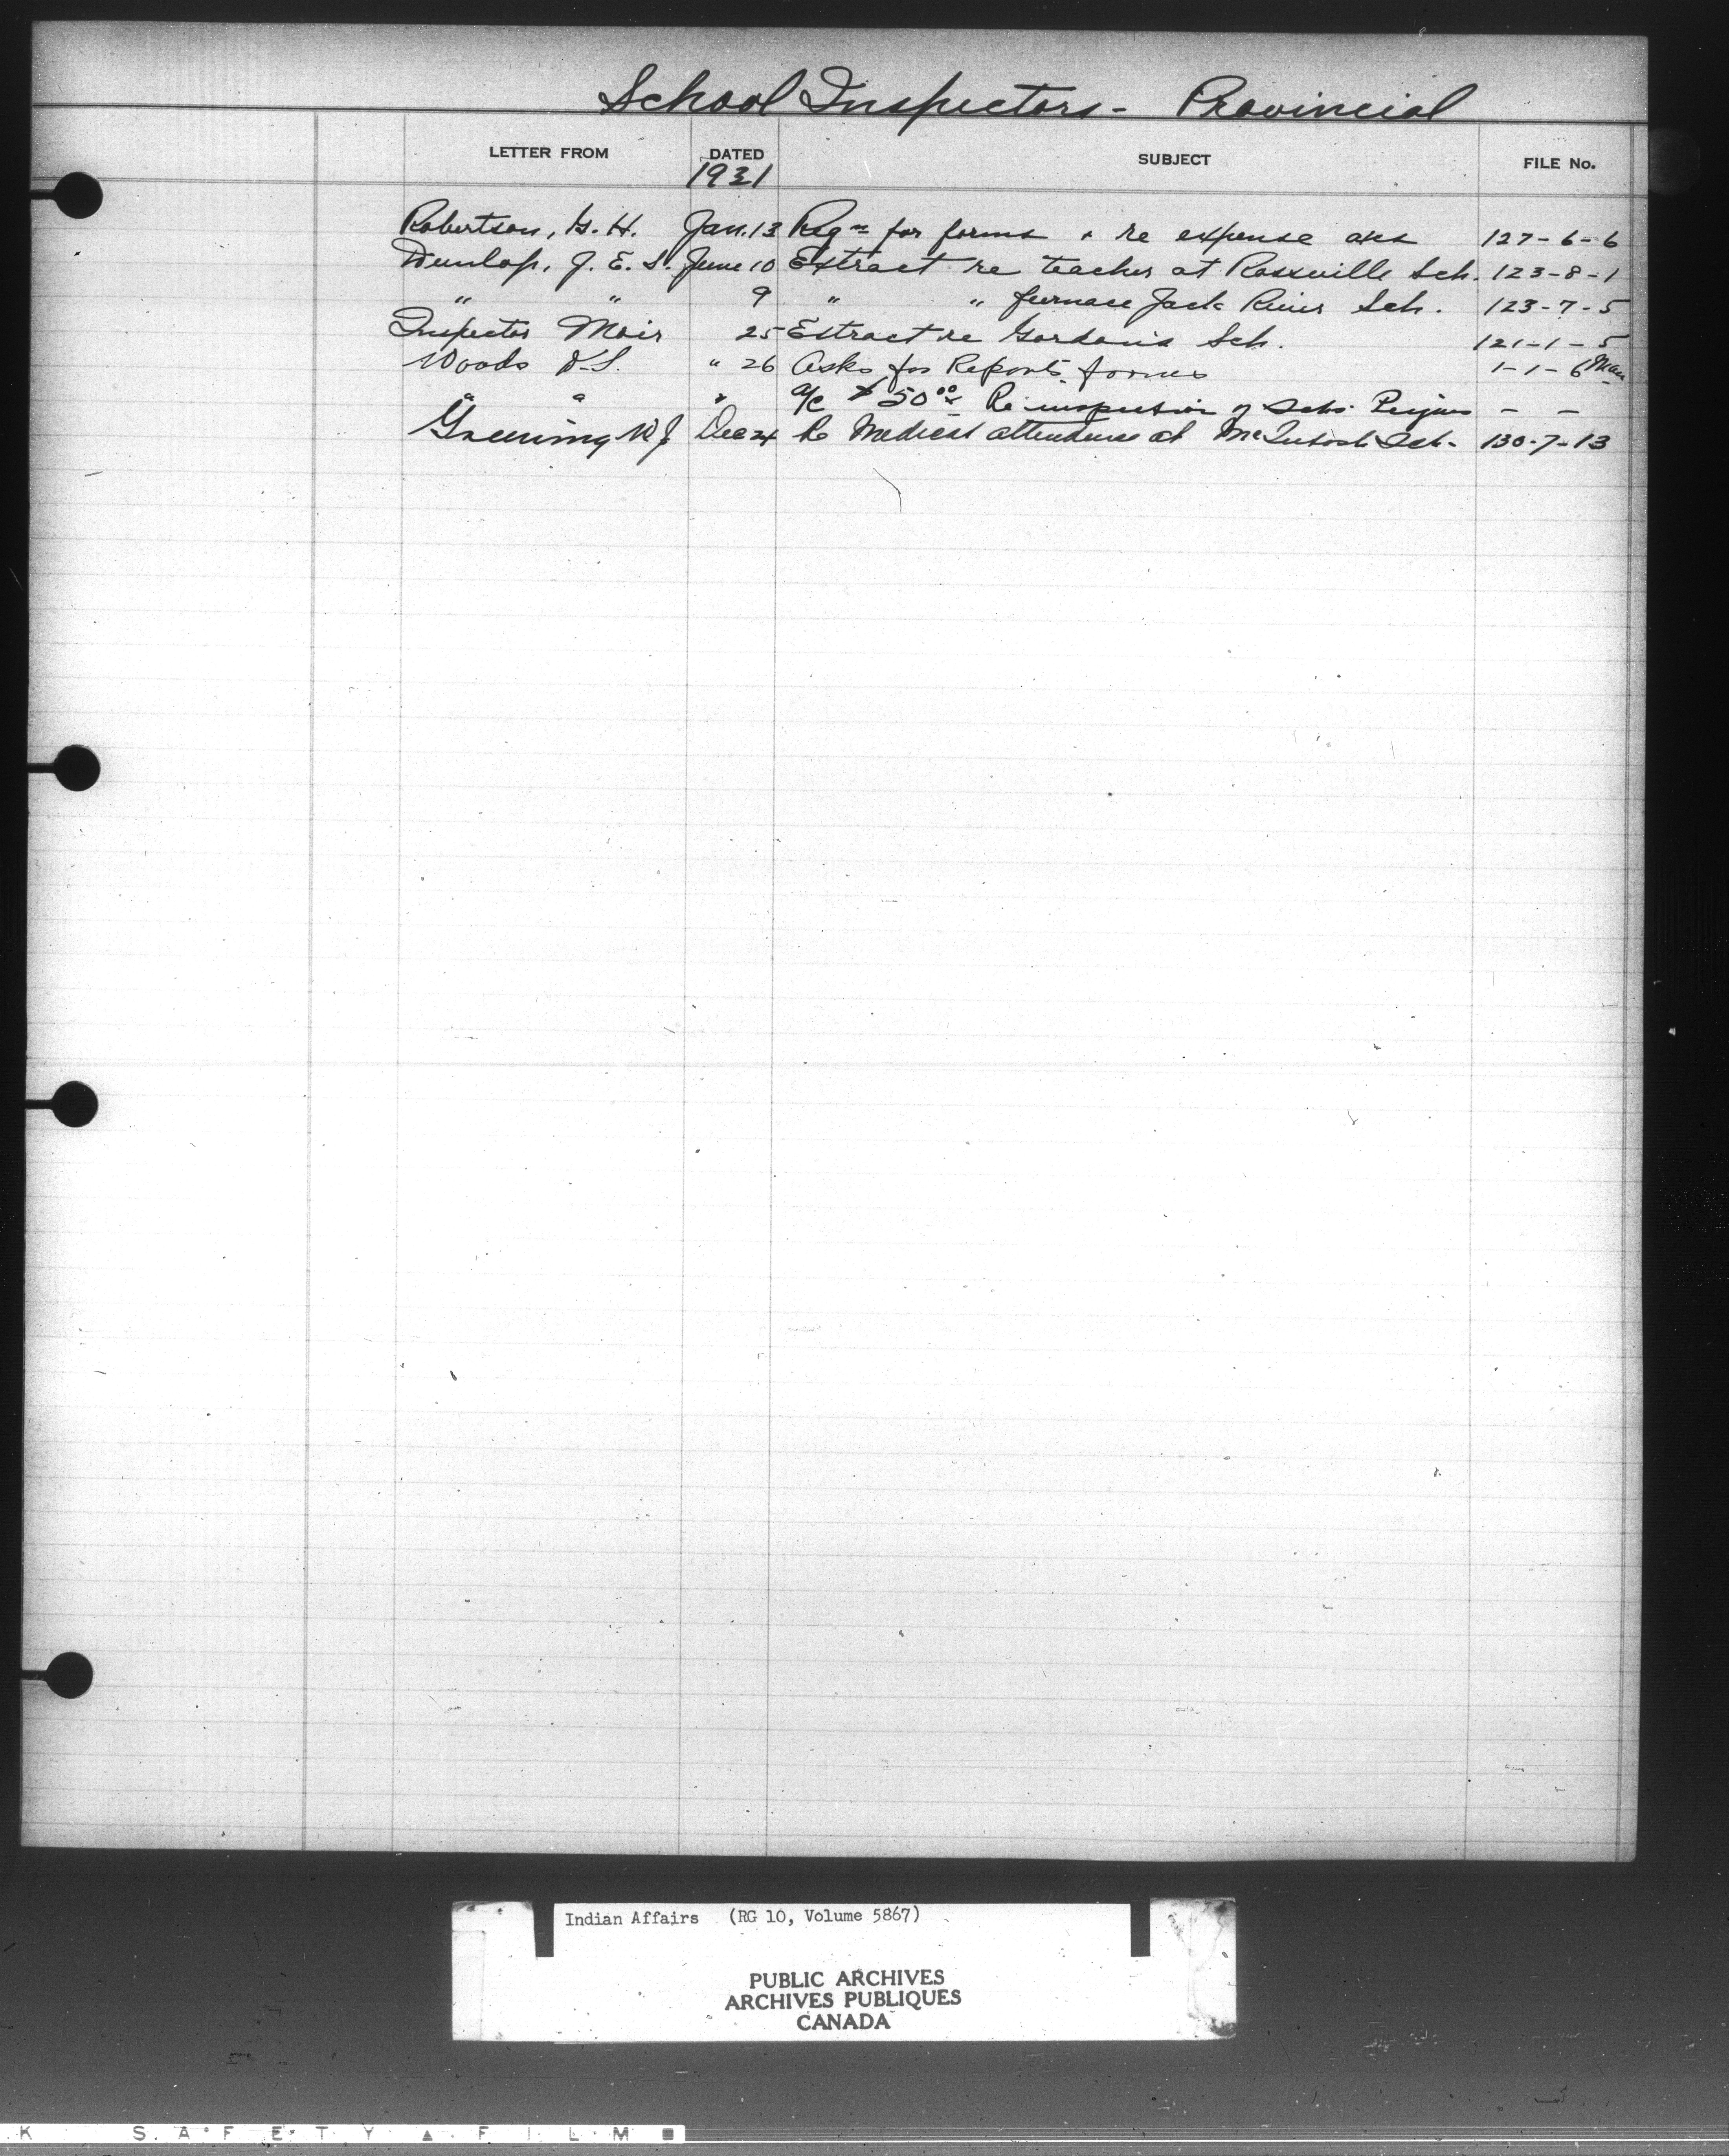 School Inspectors - Provincial
LETTER FROM DATED SUBJECT FILE No.
1931
Robertson, G. H. Jan. 13 Reqn for forms & re expense accs 127-6-6
Dunlop, J. E. S. June 10 Extract re teacher at Rossville Sch. 123-8-1
" " 9 " " furnace Jack River Sch. 123-7-5
Inspector Moir 25 Extract re Gordon's Sch. 121-1-5
Woods D.S. " 26 Asks for Reports forms 1-1-6 Man
" " " a/c $50.00 Re inspection of Schs. - -
Greening W J Dec 24 Re Medical attendance at McIntosh Sch. 130-7-13
Indian Affairs (RG 10, Volume 5867)
PUBLIC ARCHIVES
ARCHIVES PUBLIQUES
CANADA
K SAFETY ▲ FILM ■